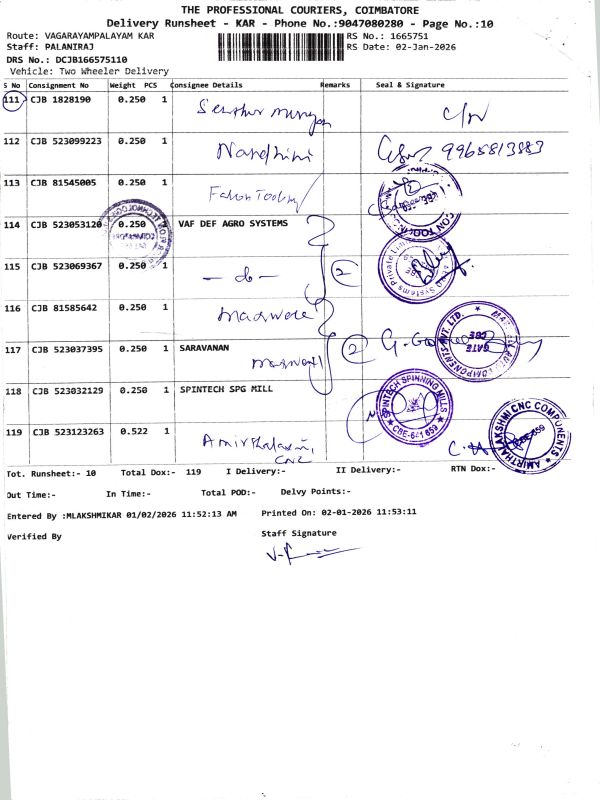 THE PROFESSIONAL COURIERS, COIMBATORE
Delivery Runsheet - KAR - Phone No.:9047080280 - Page No.:10
Route: VAGARAYAMPALAYAM KAR
RS No.: 1665751
Staff: PALANIRAJ
RS Date: 02-Jan-2026
DRS No.: DCJB166575110
Vehicle: Two Wheeler Delivery
S No Consignment No Weight PCS Consignee Details Remarks Seal & Signature
111 CJB 1828190 0.250 1 C/W
112 CJB 523099223 0.250 1 Nandhini 9965813383
113 CJB 81545005 0.250 1
114 CJB 523053120 0.250 1 VAF DEF AGRO SYSTEMS
115 CJB 523069367 0.250 1 2
116 CJB 81585642 0.250 1
117 CJB 523037395 0.250 1 SARAVANAN 2
MAR AUTO COMPONENTS PVT. LTD. GATE CBE
118 CJB 523032129 0.250 1 SPINTECH SPG MILL
SPINTECH SPINNING MILLS CBE-641 659
119 CJB 523123263 0.522 1 Amirthalaxmi CNC
AMIRTHALAKSHMI CNC COMPONENTS
Tot. Runsheet:- 10 Total Dox:- 119 I Delivery:- II Delivery:- RTN Dox:-
Out Time:- In Time:- Total POD:- Delvy Points:-
Entered By :MLAKSHMIKAR 01/02/2026 11:52:13 AM Printed On: 02-01-2026 11:53:11
Verified By Staff Signature